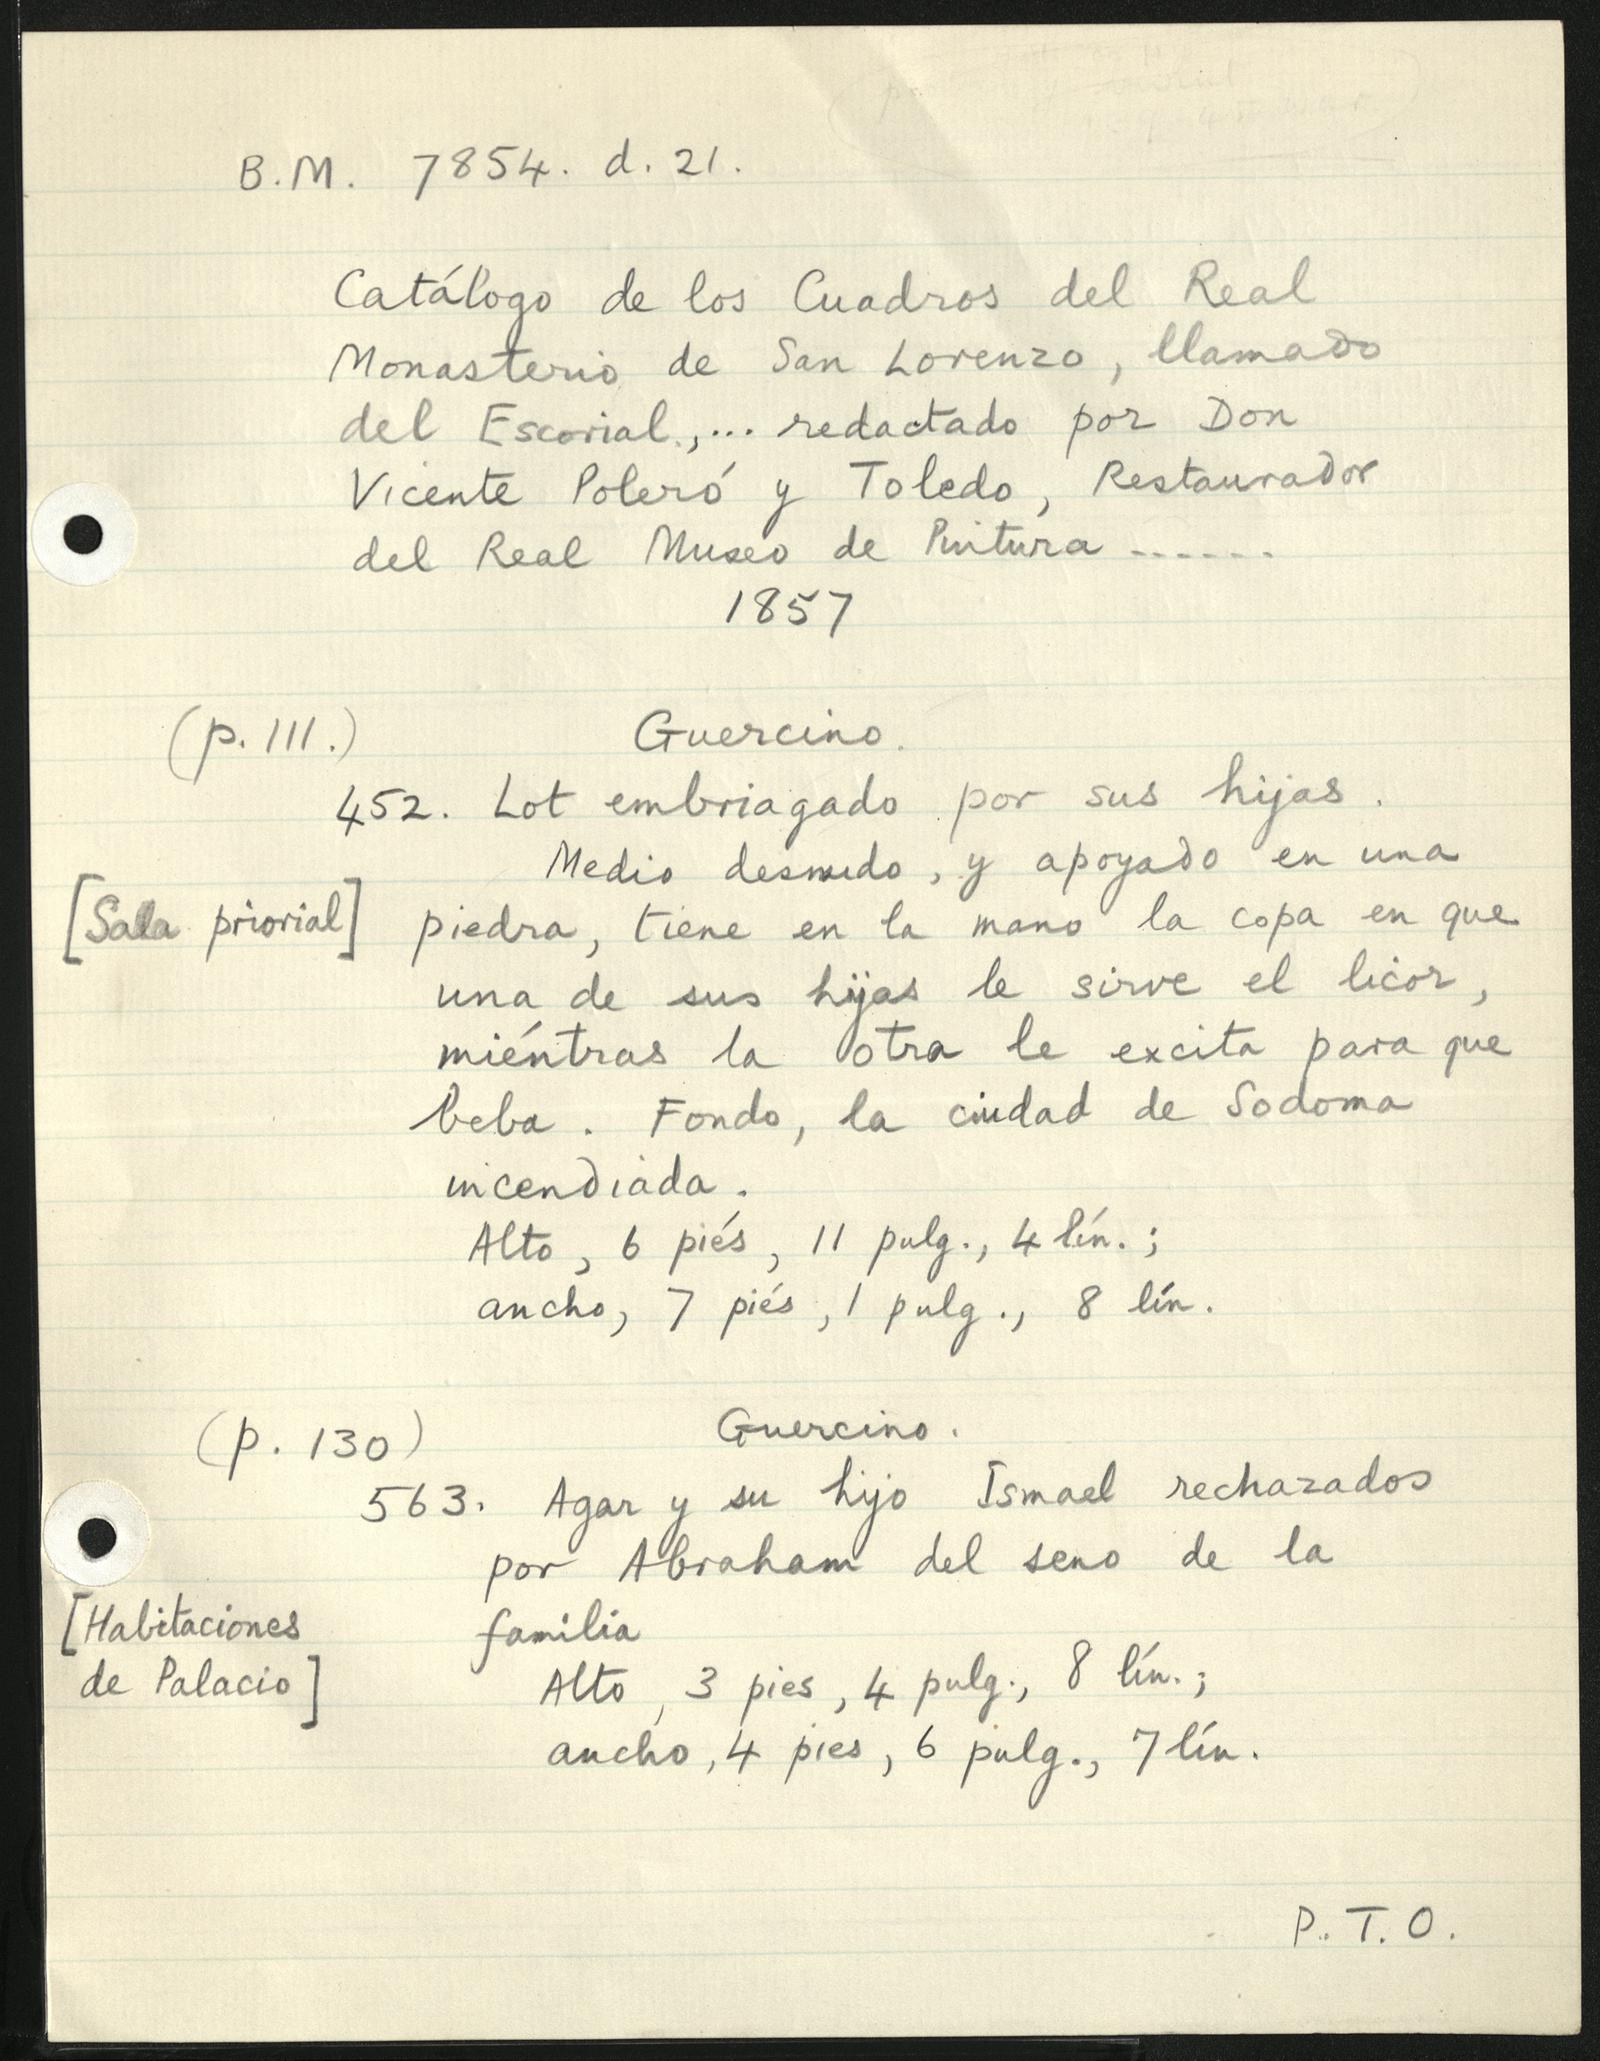 B.M. 7854. d. 21.
Catálogo de los Cuadros del Real
Monasterio de San Lorenzo, llamado
del Escorial,... redactado por Don
Vicente Poleró y Toledo, Restaurador
del Real Museo de Pintura ......
1857
(p. 111.) Guercino.
452. Lot embriagado por sus hijas.
Medio desnudo, y apoyado en una
[Sala priorial] piedra, tiene en la mano la copa en que
una de sus hijas le sirve el licor,
miéntras la otra le excita para que
beba. Fondo, la ciudad de Sodoma
incendiada.
Alto, 6 piés, 11 pulg., 4 lín.;
ancho, 7 piés, 1 pulg., 8 lín.
(p. 130) Guercino.
563. Agar y su hijo Ismael rechazados
por Abraham del seno de la
[Habitaciones familia
de Palacio] Alto, 3 pies, 4 pulg., 8 lín.;
ancho, 4 pies, 6 pulg., 7 lín.
P.T.O.